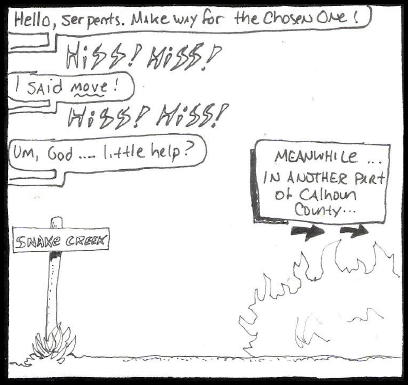 Hello, Serpents. Make way for the Chosen One!
Hiss! Hiss!
I said move!
Hiss! Hiss!
Um, God .... little help?
MEANWHILE ...
IN ANOTHER PART
of CAlhoun
County...
SNAKE CREEK